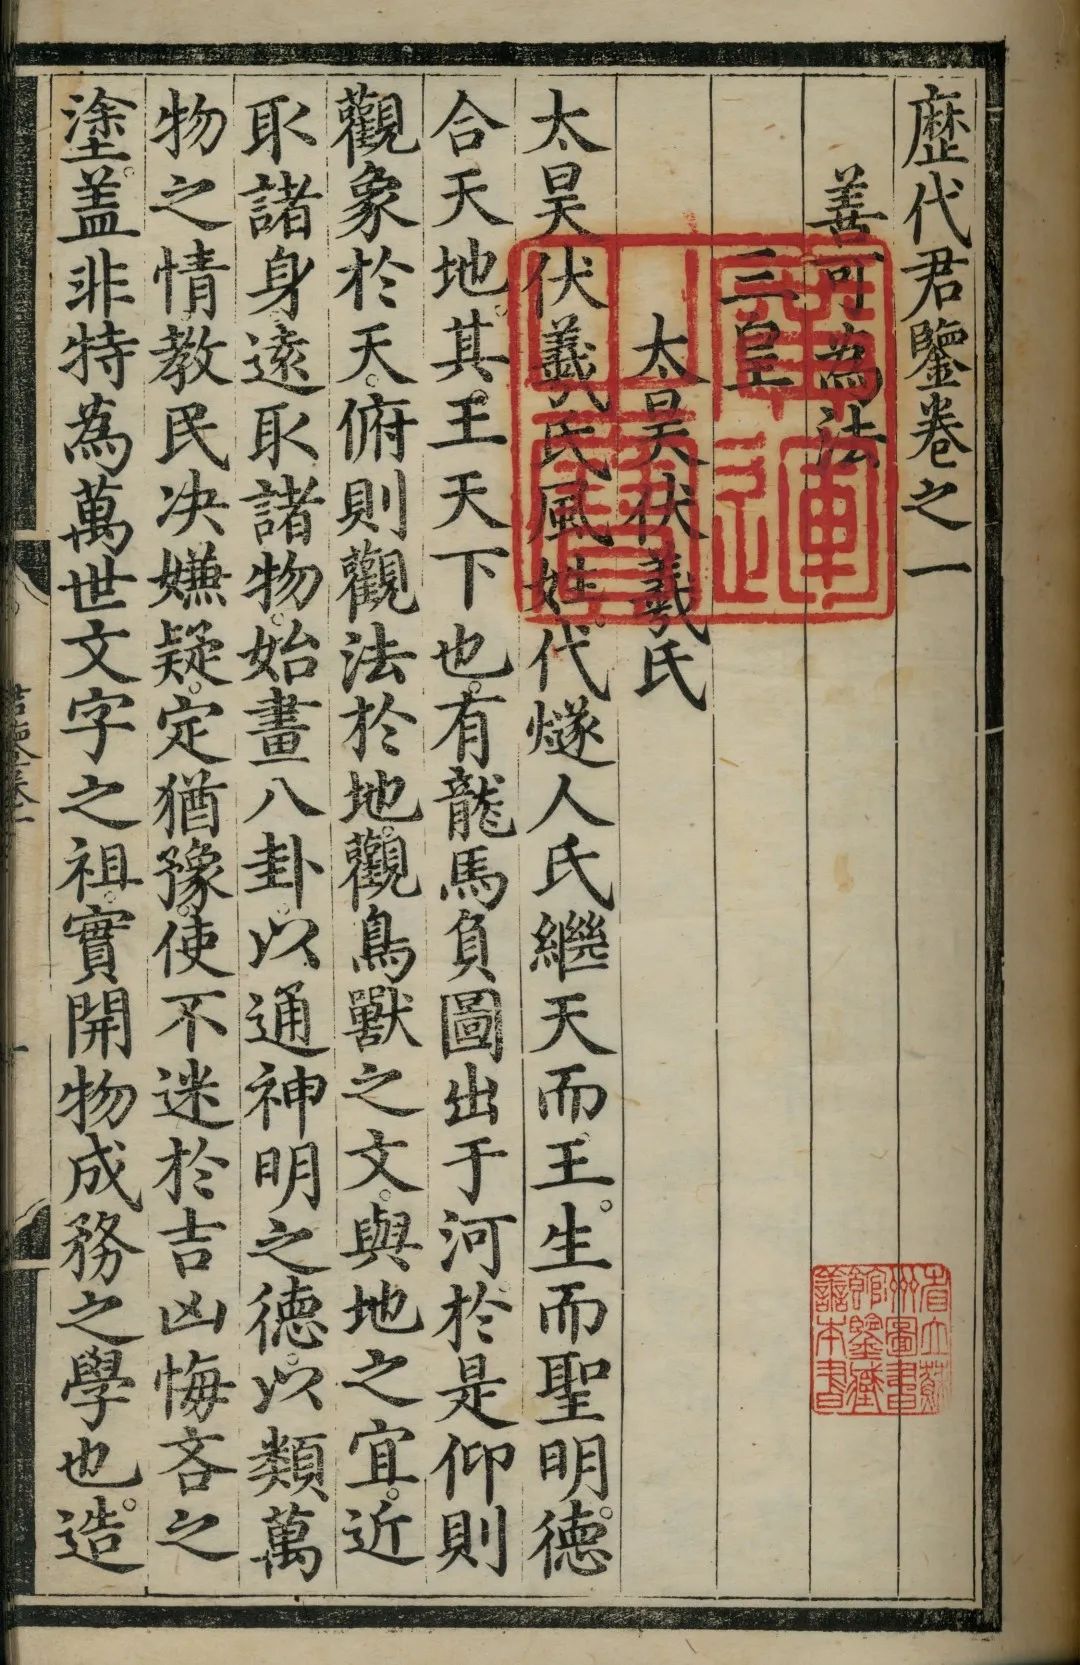 歷代君鑒卷之一
善可為法
三皇
太昊伏羲氏
太昊伏羲氏風姓。代燧人氏繼天而王。生而聖明。德
合天地。其王天下也。有龍馬負圖出于河。於是仰則
觀象於天。俯則觀法於地。觀鳥獸之文。與地之宜。近
取諸身。遠取諸物。始畫八卦。以通神明之德。以類萬
物之情。教民决嫌疑。定猶豫。使不迷於吉凶悔吝之
塗。盖非特為萬世文字之祖。實開物成務之學也。造
廣運
之寶
省立蘇
州圖書
館鑒藏
譱本書